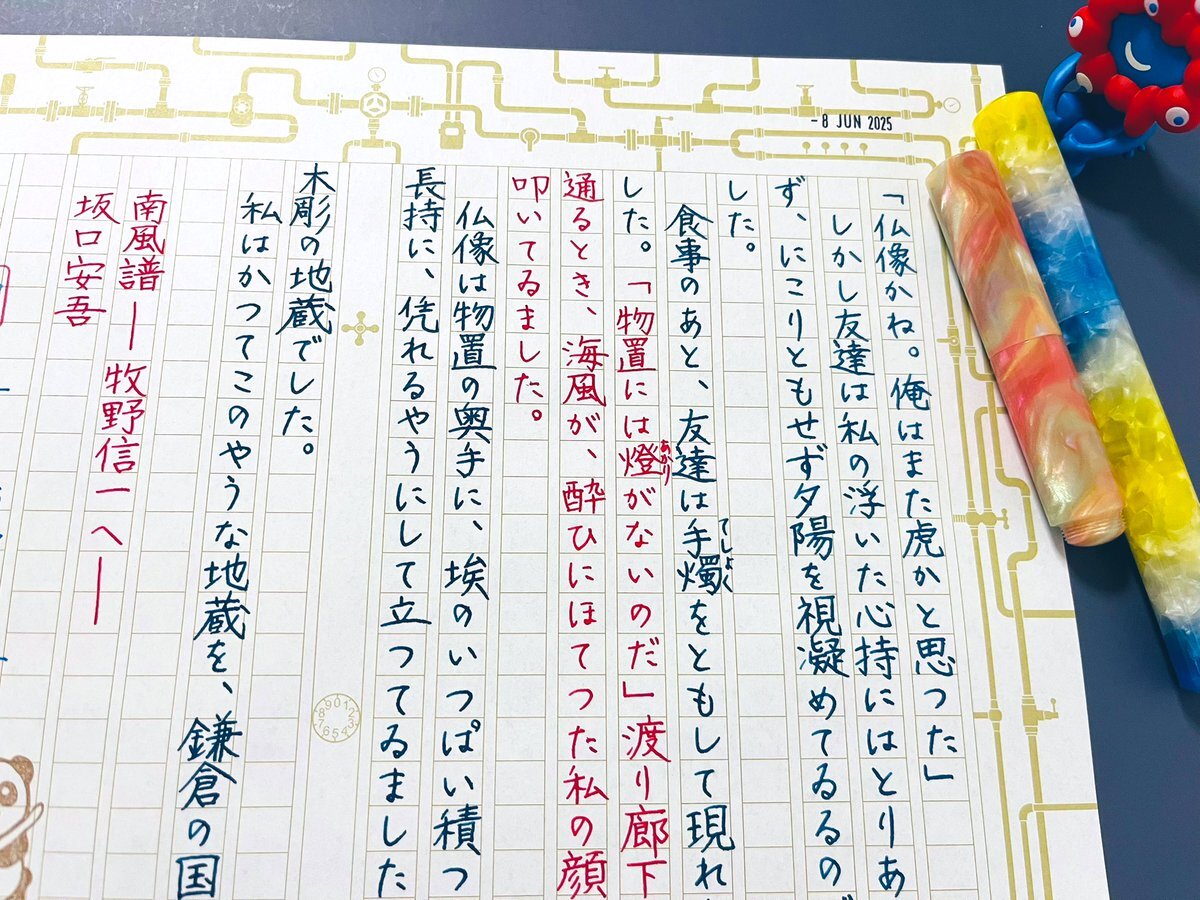 -8 JUN 2025
「仏像かね。俺はまた虎かと思つた」
しかし友達は私の浮いた心持にはとりあ
ず、にこりともせず夕陽を視凝めてゐるの
した。
食事のあと、友達は手燭をともして現れ
てしよく
した。「物置には燈がないのだ」渡り廊下
あかり
通るとき、海風が、酔ひにほてつた私の顔
叩いてゐました。
仏像は物置の奥手に、埃のいつぱい積つ
長持に、凭れるやうにして立つてゐました
木彫の地蔵でした。
私はかつてこのやうな地蔵を、鎌倉の国
南風譜 ― 牧野信一へ ―
坂口安吾